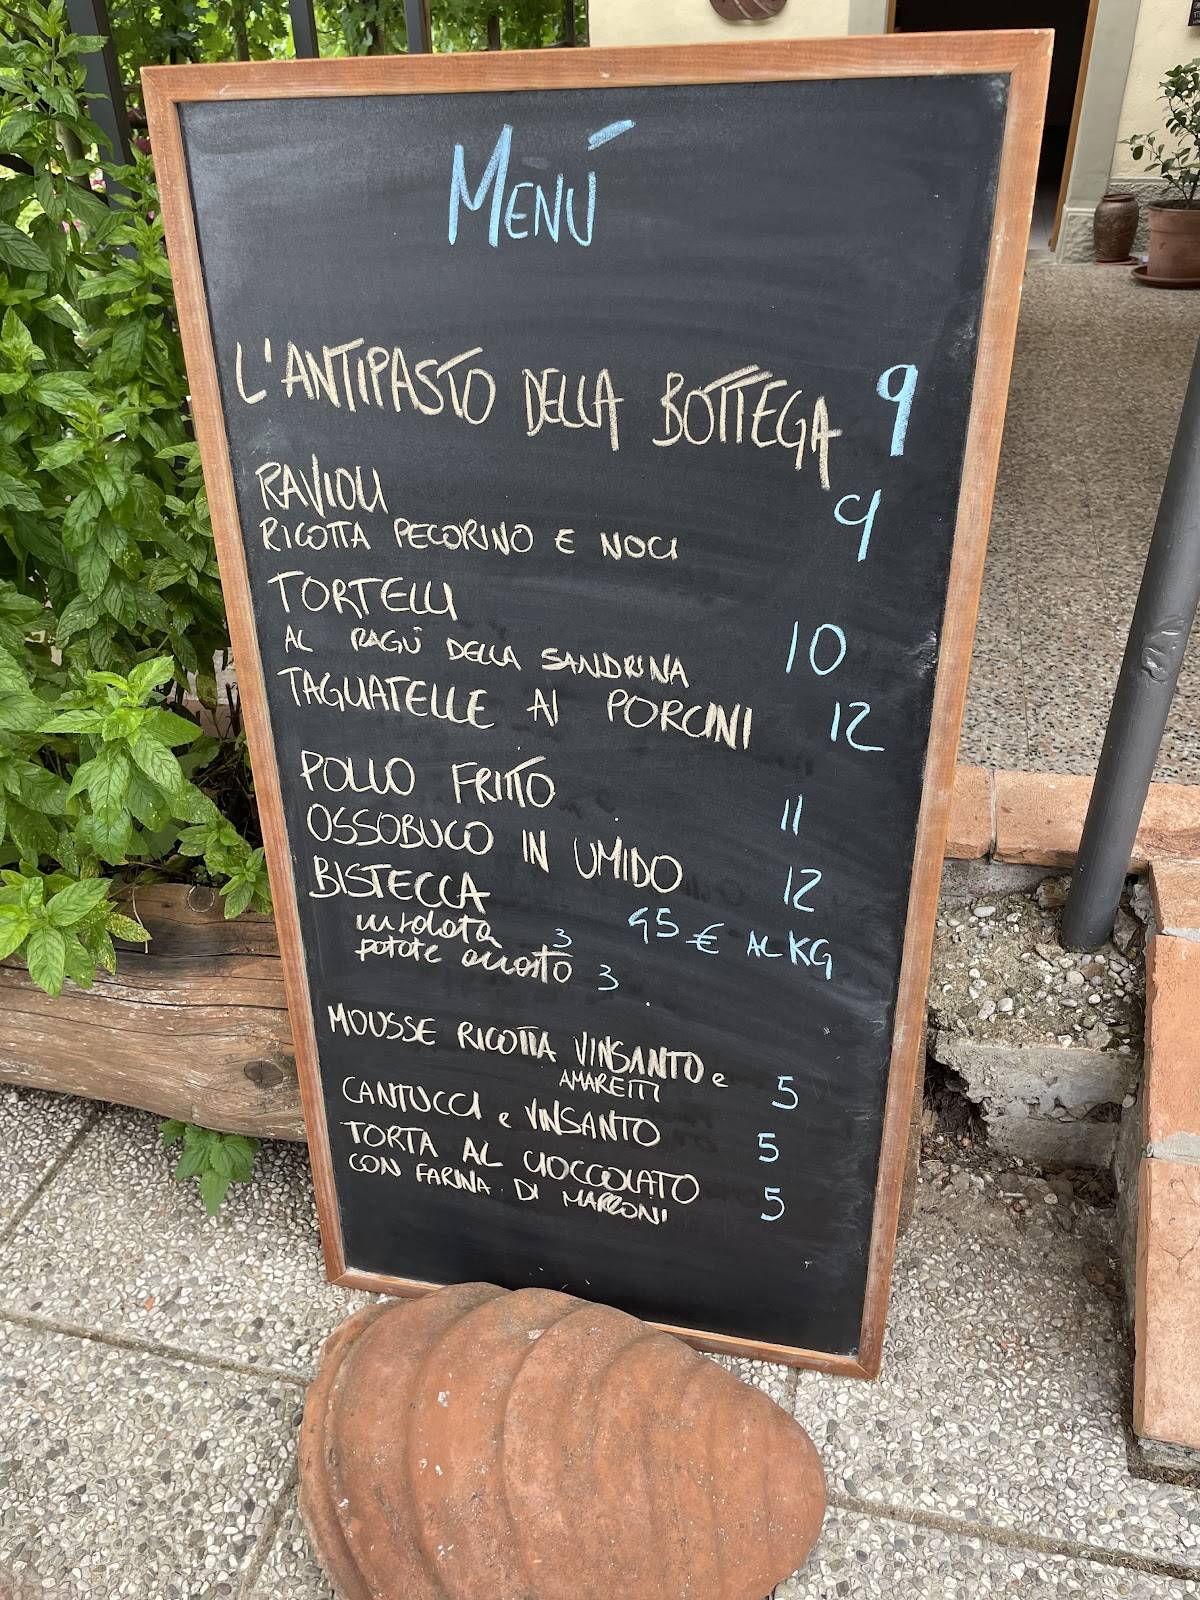 MENÚ
L'ANTIPASTO DELLA BOTTEGA 9
RAVIOLI 9
RICOTTA PECORINO E NOCI
TORTELLI
AL RAGÚ DELLA SANDRINA 10
TAGLIATELLE AI PORCINI 12
POLLO FRITTO 11
OSSOBUCO IN UMIDO 12
BISTECCA 45 € AL KG
insalata 3
patate arrosto 3
MOUSSE RICOTTA VINSANTO e 5
AMARETTI
CANTUCCI e VINSANTO 5
TORTA AL CIOCCOLATO 5
CON FARINA DI MARRONI